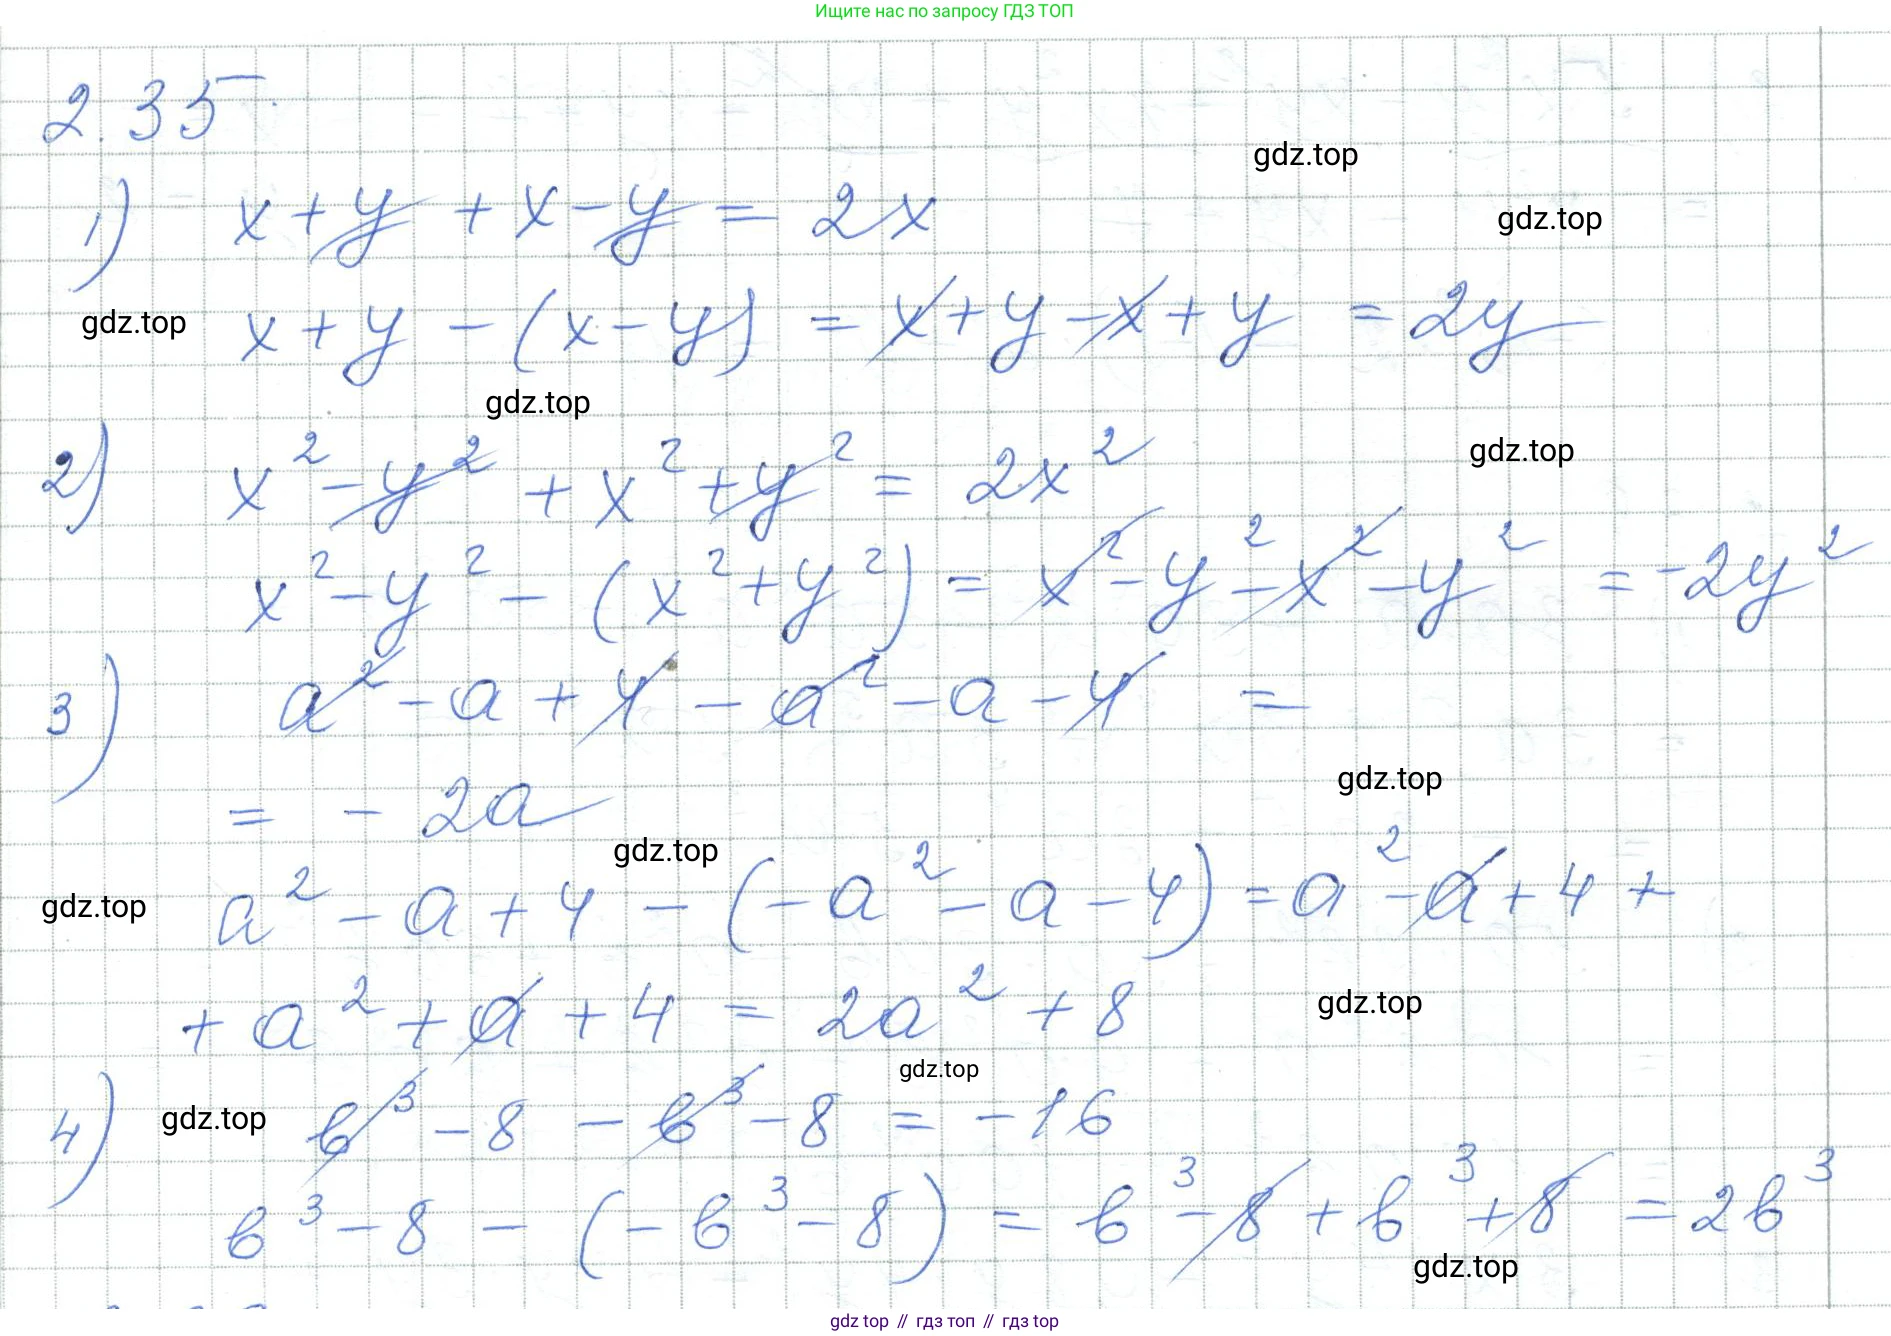 Ищите нас по запросу ГДЗ ТОП
2.35
gdz.top
1) x + y + x - y = 2x
gdz.top
gdz.top
x + y - (x - y) = x + y - x + y = 2y
gdz.top
gdz.top
2) x² - y² + x² + y² = 2x²
x² - y² - (x² + y²) = x² - y² - x² - y² = -2y²
3) a² - a + 4 - a² - a - 4 =
gdz.top
= - 2a
gdz.top
gdz.top
a² - a + 4 - (-a² - a - 4) = a² - a + 4 +
+ a² + a + 4 = 2a² + 8
gdz.top
gdz.top
4) gdz.top b³ - 8 - b³ - 8 = -16
b³ - 8 - (-b³ - 8) = b³ - 8 + b³ + 8 = 2b³
gdz.top
gdz top // гдз топ // гдз top